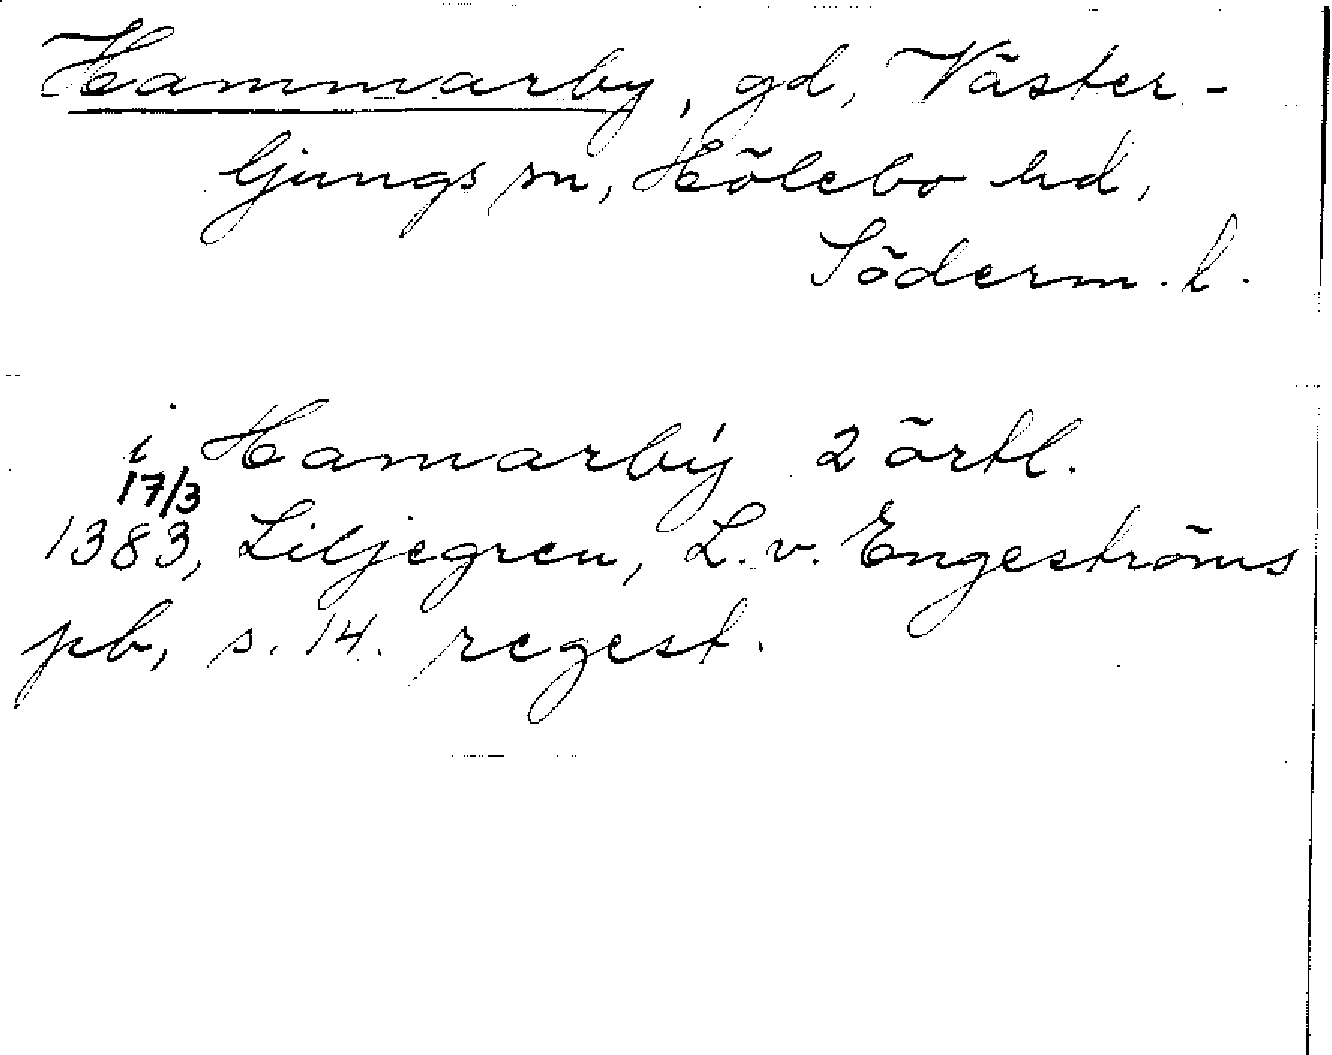 Hammarby, gd, Väster-
ljungs sn, Hölebo hd,
Söderm. l.
i Hamarbý 2 örtl.
17/3
1383, Liljegren, L. v. Engeströms
pb, s. 14. regest.